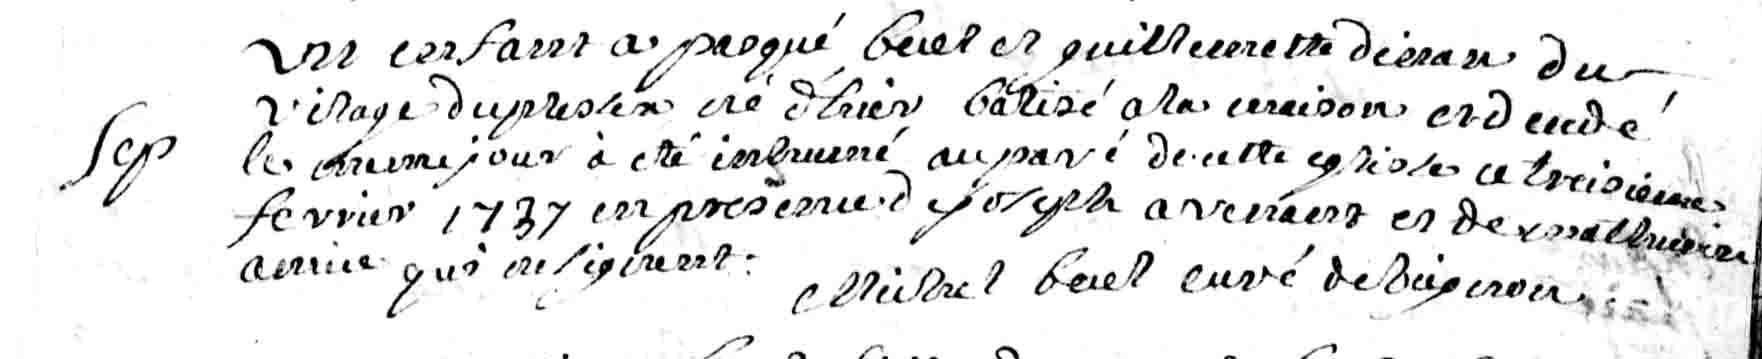 un enfant a pasqué buel et guillemette dieran du
Sep
vilage duplesix né d'hier batisé a la maison et decedé
le meme jour à eté inhumé au pavé de cette eglise ce treisieme
fevrier 1737 en presence de joseph avenant et de mathurin
amice qui ne signent.
Michel buel curé de